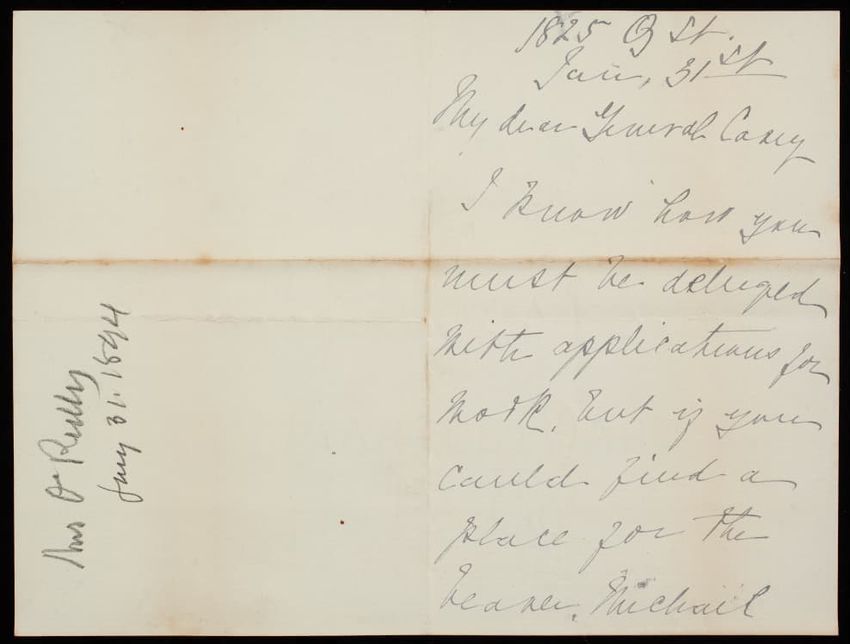 1825 Q St.
Jan, 31st
My dear General Casey
I know how you
must be deluged
with applications for
work, but if you
could find a
place for the
bearer, Michael
Mrs
Jany 31. 1894